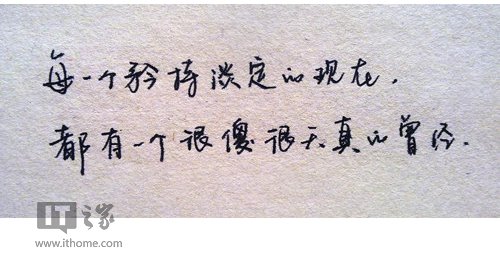 每一个矜持淡定的现在,
都有一个很傻很天真的曾经.
IT之家
www.ithome.com